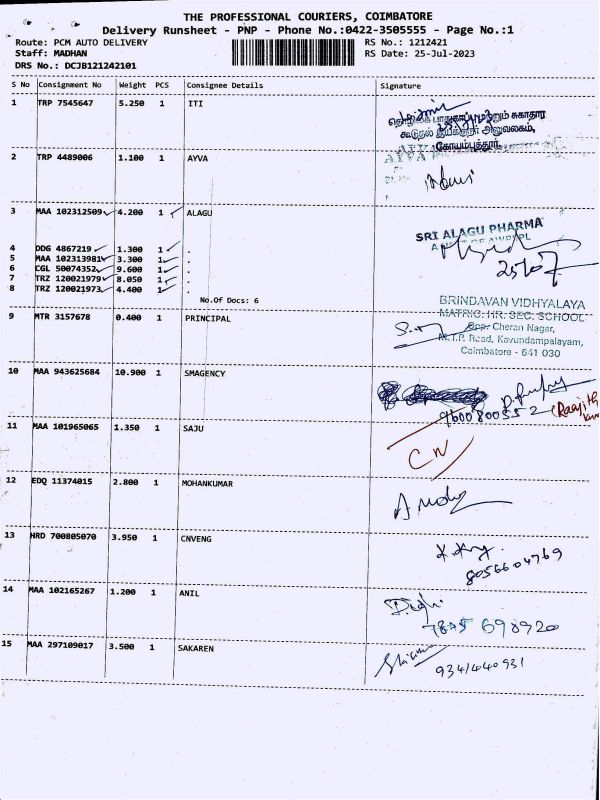 THE PROFESSIONAL COURIERS, COIMBATORE
Delivery Runsheet - PNP - Phone No.:0422-3505555 - Page No.:1
Route: PCM AUTO DELIVERY RS No.: 1212421
Staff: MADHAN RS Date: 25-Jul-2023
DRS No.: DCJB121242101
S No Consignment No Weight PCS Consignee Details Signature
1 TRP 7545647 5.250 1 ITI
கூடுதல் இயக்குநர் அலுவலகம்,
கோயம்புத்தூர்.
2 TRP 4489006 1.100 1 AYVA
AYVA
3 MAA 102312509 4.200 1 ALAGU
SRI ALAGU PHARMA
4 DDG 4867219 1.300 1 .
5 MAA 102313981 3.300 1 .
6 CGL 50074352 9.600 1 .
7 TRZ 120021979 8.050 1 .
8 TRZ 120021973 4.400 1 .
25/07
No.Of Docs: 6
BRINDAVAN VIDHYALAYA
MATRIC. HR. SEC. SCHOOL
9 MTR 3157678 0.400 1 PRINCIPAL
Opp. Cheran Nagar,
M.T.P. Road, Kavundampalayam,
Coimbatore - 641 030
10 MAA 943625684 10.900 1 SMAGENCY
9600800552
11 MAA 101965065 1.350 1 SAJU
CN
12 EDQ 11374015 2.800 1 MOHANKUMAR
13 HRD 700805070 3.950 1 CNVENG
8056604769
14 MAA 102165267 1.200 1 ANIL
7845 698920
15 MAA 297109017 3.500 1 SAKAREN
9341440931